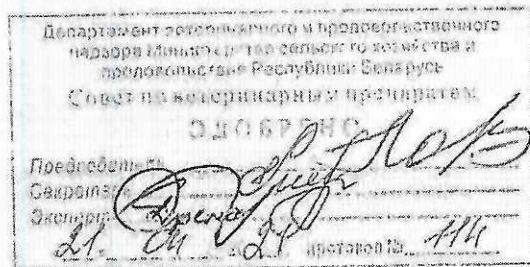 Департамент ветеринарного и продовольственного
надзора Министерства сельского хозяйства и
продовольствия Республики Беларусь
Совет по ветеринарным препаратам
ОДОБРЕНО
Председатель
Секретарь
Эксперт
21 04 2021 протокол № 114